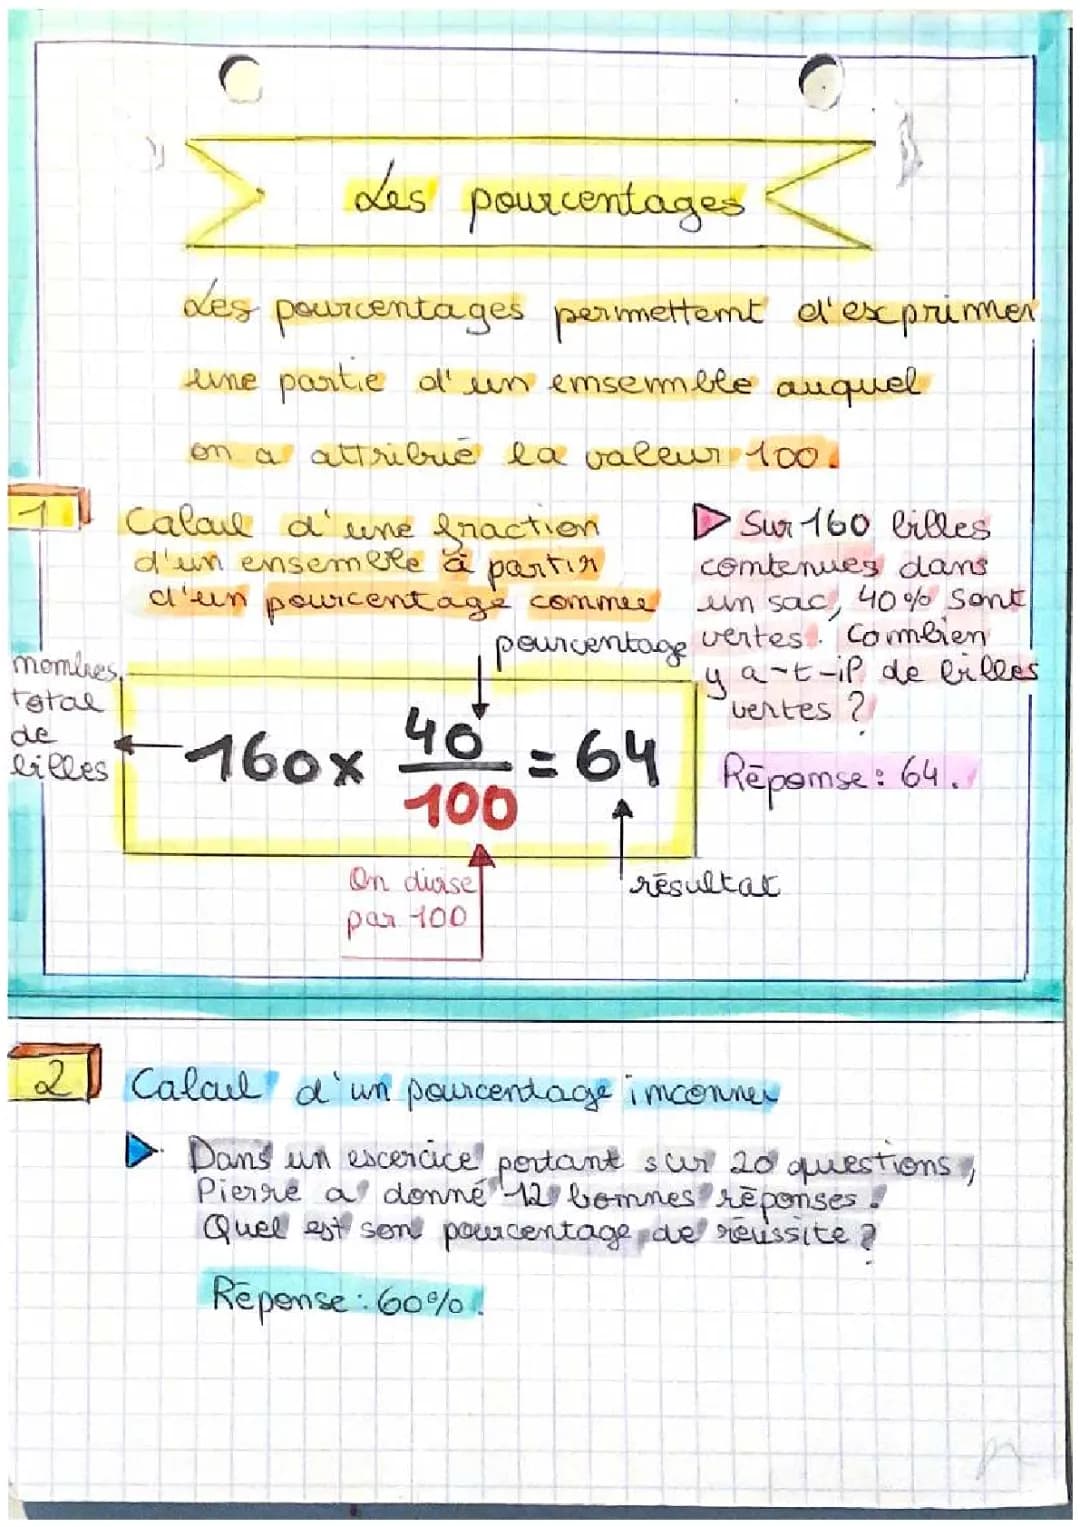 Les pourcentages
Les pourcentages permettemt d'exprimer
une partie d'un emsemmble auquel
on a attribué la valeur 100.
1
Calcul d'une fraction
d'un ensemble à partir
d'un pourcentage commee
pourcentage
▷ Sur 160 billes
comtenues dans
un sac, 40% sont
vertes. Combien
y a-t-il de billes
vertes ?
Réponse : 64.
nombres
total
de
billes
160x 40/100 = 64
On divise
par 100
résultat
2
Calcul d'un pourcentage imconner
▷ Dans un escercice portant sur 20 questions,
Pierre a donné 12 bommes réponses.
Quel est son pourcentage de réussite ?
Réponse : 60%.